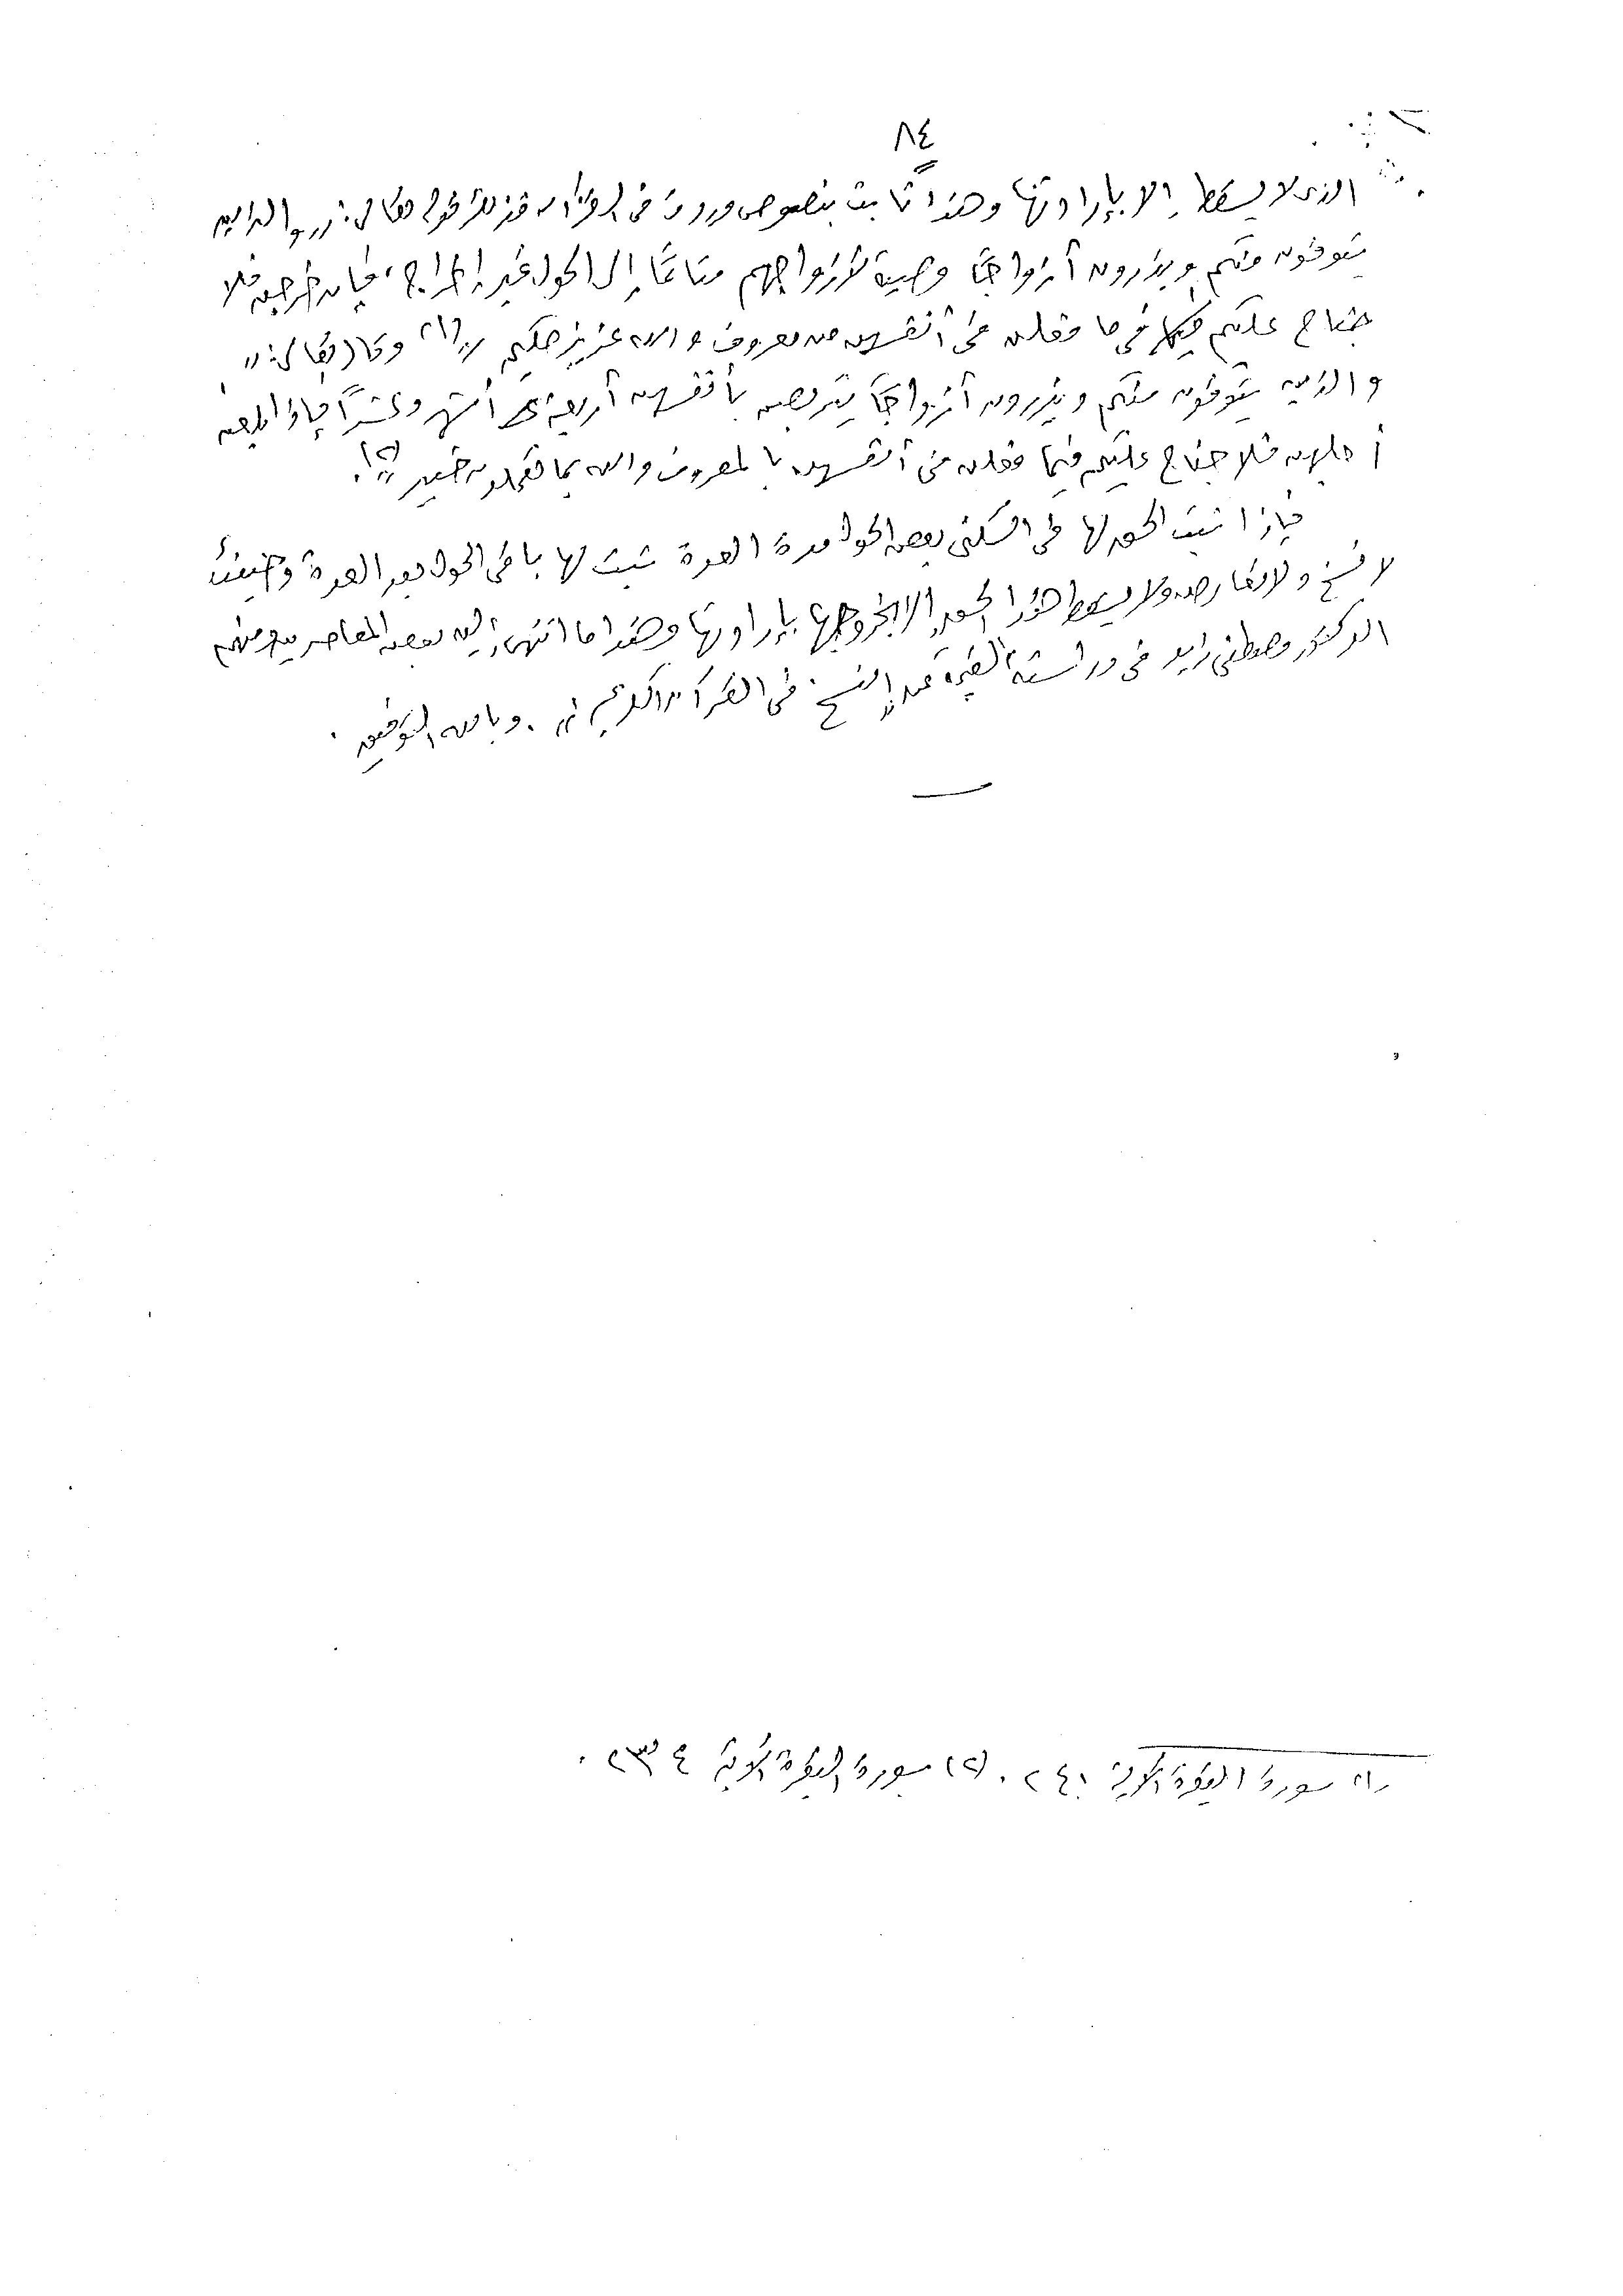 ٨٤
الذى لا يسقط إلا بإرادتها وهذا ثابت بنصوص وردت فى القرآن من ذلك قوله تعالى: "والذين
يتوفون منكم ويذرون أزواجًا وصية لأزواجهم متاعًا إلى الحول غير إخراج، فإن خرجن فلا
جناح عليكم فى ما فعلن فى أنفسهن من معروف والله عزيز حكيم"(١) وقال تعالى: "
والذين يتوفون منكم ويذرون أزواجًا يتربصن بأنفسهن أربعة أشهر وعشرًا فإذا بلغن
أجلهن فلا جناح عليكم فيما فعلن فى أنفسهن بالمعروف والله بما تعملون خبير"(٢).
فإذا ثبت الحق لها فى السكنى بعض الحول مدة العدة ثبت لها باقى الحول بعد العدة وحينئذ
لا نسخ ولا تعارض ولا يسقط هذا الحق إلا بخروجها بإرادتها وهذا ما انتهى إليه بعض المعاصرين ومنهم
الدكتور مصطفى زيد فى دراسته القيمة عن النسخ فى القرآن الكريم. وبالله التوفيق.
(١) سورة البقرة الآية ٢٤٠. (٢) سورة البقرة الآية ٢٣٤.